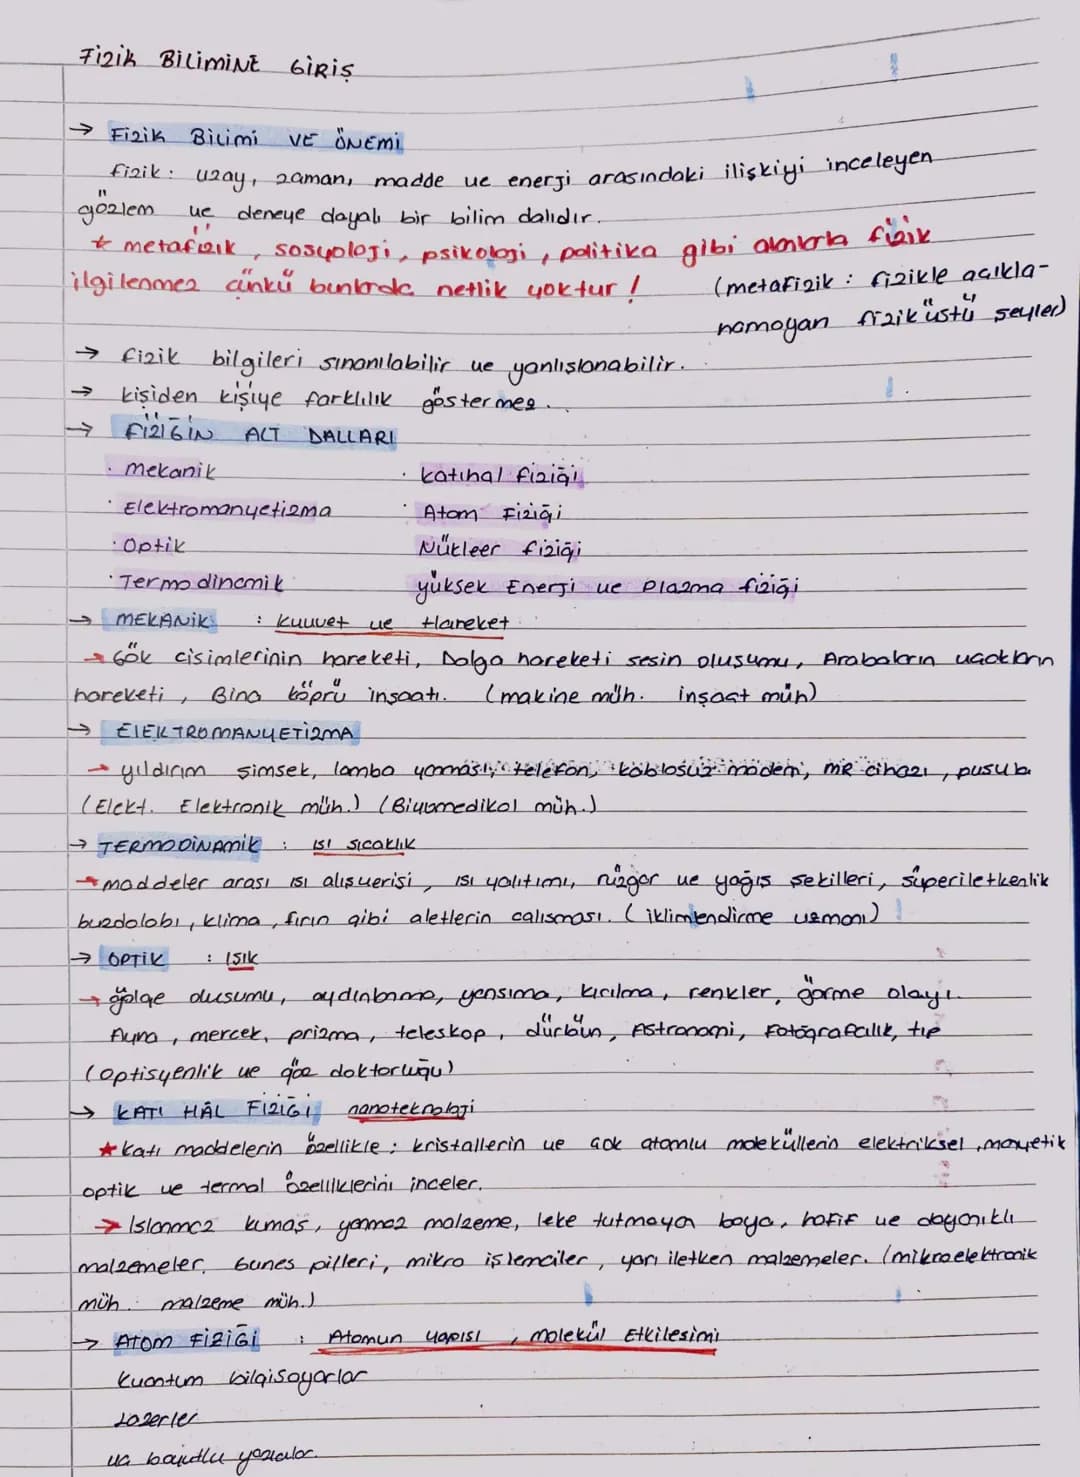 Fizik BiLiMiNE GiRiŞ
→ Fizik Bilimi VE ÖNEMİ
fizik : uzay, zaman, madde ve enerji arasındaki ilişkiyi inceleyen
gözlem ve deneye dayalı bir bilim dalıdır.
★ metafizik, sosyoloji, psikoloji, politika gibi alanlarla fizik
ilgilenmez çünkü bunlarda netlik yoktur !
(metafizik : fizikle açıkla-
namayan fizik üstü şeyler)
→ fizik bilgileri sınanılabilir ve yanlışlanabilir.
→ kişiden kişiye farklılık göstermez.
→ FİZİĞİN ALT DALLARI
· Mekanik · katıhal fiziği
· Elektromanyetizma · Atom Fiziği
· Optik Nükleer fiziği
· Termodinamik yüksek Enerji ve Plazma fiziği
→ MEKANİK : kuvvet ve Hareket
→ Gök cisimlerinin hareketi, Dalga hareketi sesin oluşumu, Arabaların uçakların
hareketi, Bina köprü inşaatı. (makine müh. inşaat müh)
→ ElEKTROMANYETiZMA
→ yıldırım şimşek, lamba yanması, telefon, kablosuz modem, MR cihazı, pusula
(Elekt. Elektronik müh.) (Biyomedikal müh.)
→ TERMODİNAMİK : ısı sıcaklık
→ maddeler arası ısı alışverişi, ısı yalıtımı, rüzgar ve yağış şekilleri, süperiletkenlik
buzdolabı, klima, fırın gibi aletlerin çalışması. (iklimlendirme uzmanı)
→ OPTİK : IŞIK
→ gölge oluşumu, aydınlanma, yansıma, kırılma, renkler, görme olayı.
Ayna, mercek, prizma, teleskop, dürbün, Astronomi, Fotoğrafcılık, tıp
(optisyenlik ve göz doktorluğu)
→ KATI HÂL FİZİĞİ nanoteknoloji
★ katı maddelerin özellikle : kristallerin ve çok atomlu moleküllerin elektriksel, manyetik
optik ve termal özelliklerini inceler.
→ Islanmaz kumaş, yanmaz malzeme, leke tutmayan boya, hafif ve dayanıklı
malzemeler, Güneş pilleri, mikro işlemciler, yarı iletken malzemeler. (mikroelektronik
müh. malzeme müh.)
→ ATOM FİZİĞİ : Atomun yapısı, Molekül Etkileşimi
Kuantum bilgisayarlar
Lazerler
üç boyutlu yazıcılar.